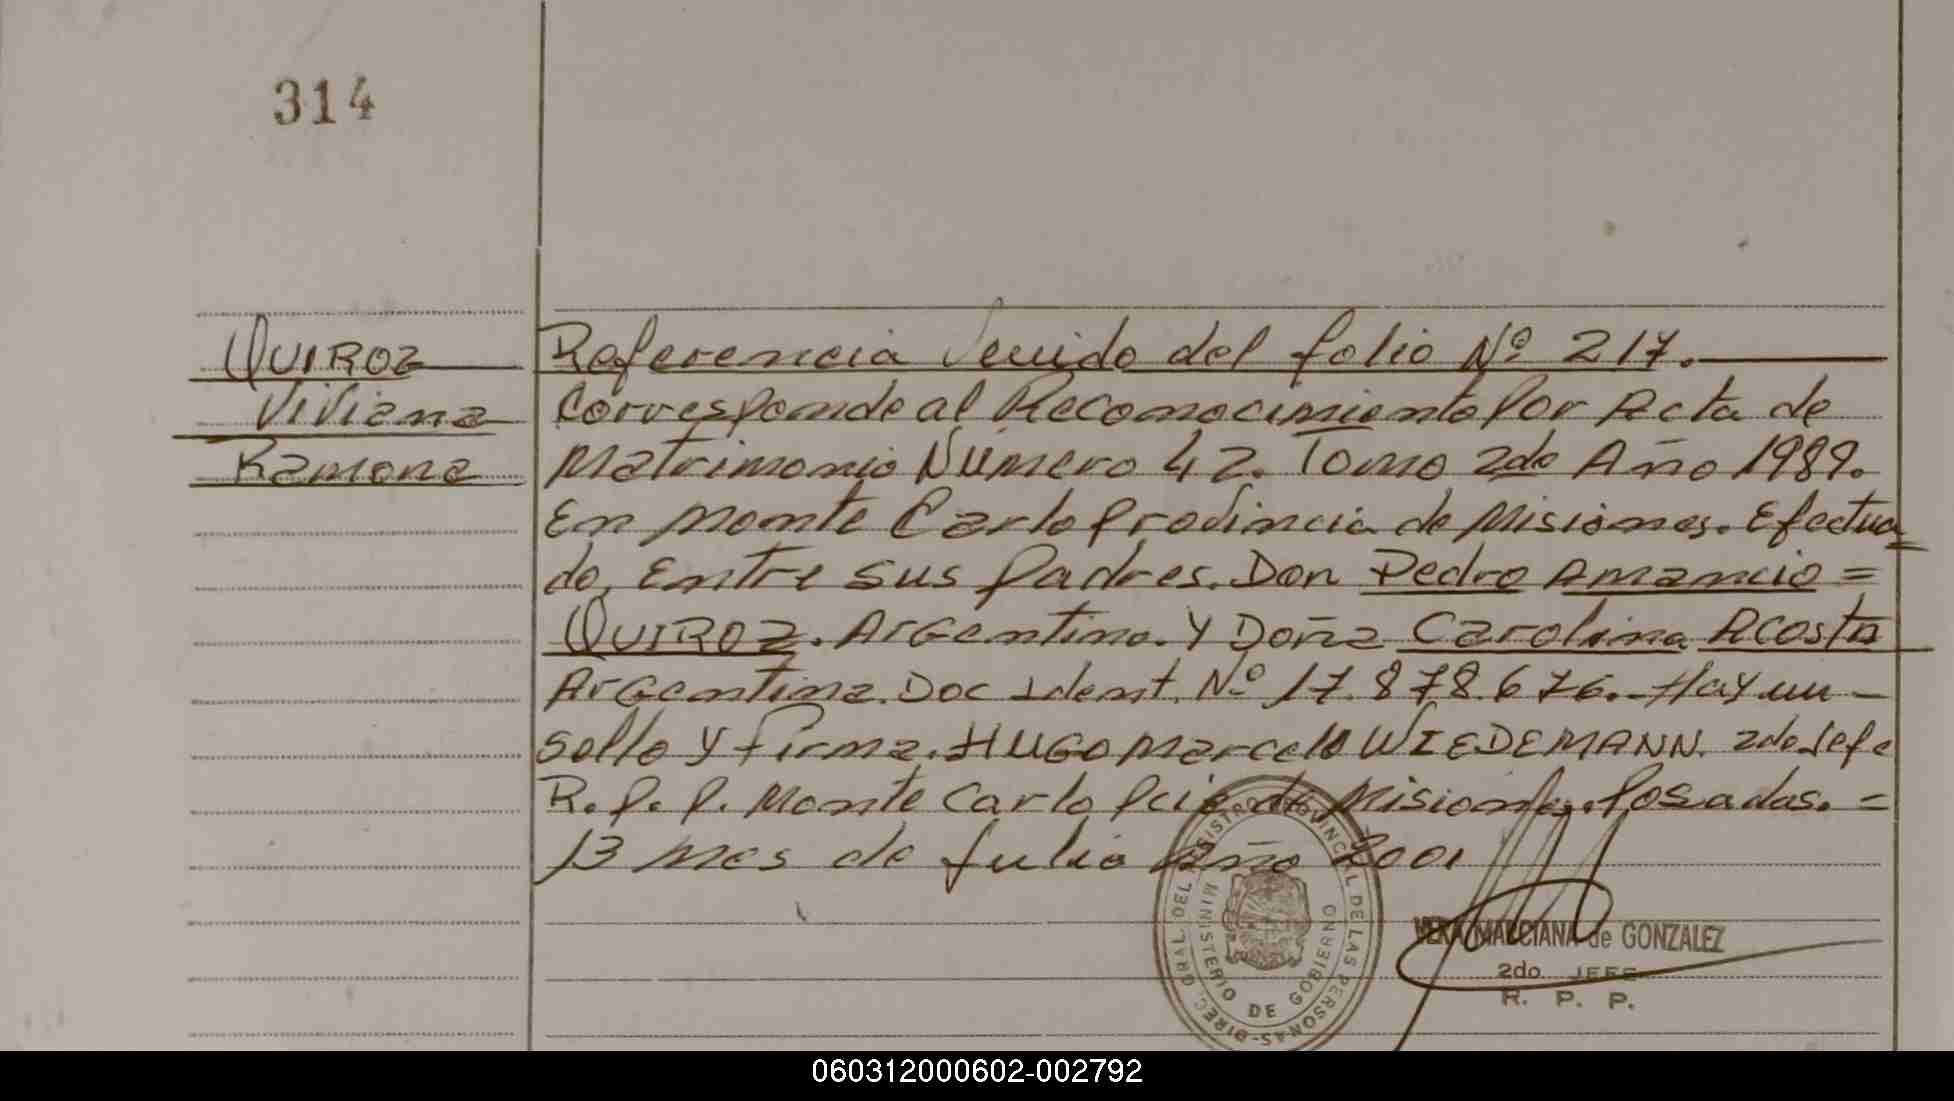 314
QUIROZ
Viviana
Ramona
Referencia Venido del folio Nº 217.
Corresponde al Reconocimiento Por Acta de
Matrimonio Número 42. Tomo 2do Año 1989.
En Monte Carlo Provincia de Misiones. Efectua
do, Entre sus Padres. Don Pedro Amancio =
QUIROZ. Argentino. Y Doña Carolina Acosta
Argentina. Doc Ident. Nº 17.878.676. Hay un
Sello y firma. HUGO Marcelo WIEDEMANN. 2do Jefe
R. P. P. Monte Carlo Pcia de Misiones. Posadas. =
13 mes de Julio Año 2001
DIREC. GRAL. DEL REGISTRO PROVINCIAL DE LAS PERSONAS-
MINISTERIO DE GOBIERNO
VERA MARCIANA de GONZALEZ
2do JEFE
R. P. P.
060312000602-002792